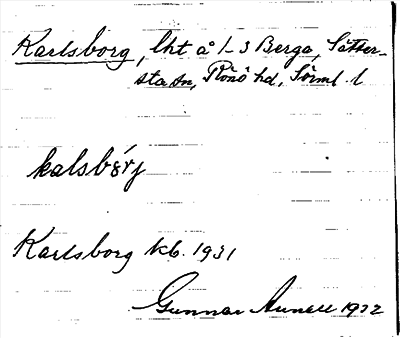 Karlsborg, lht å 1-3 Berga, Sätter-
sta sn, Rönö hd, Sörml. l
kalsbǫ́rj
Karlsborg kb. 1931
Gunnar Aunell 1932